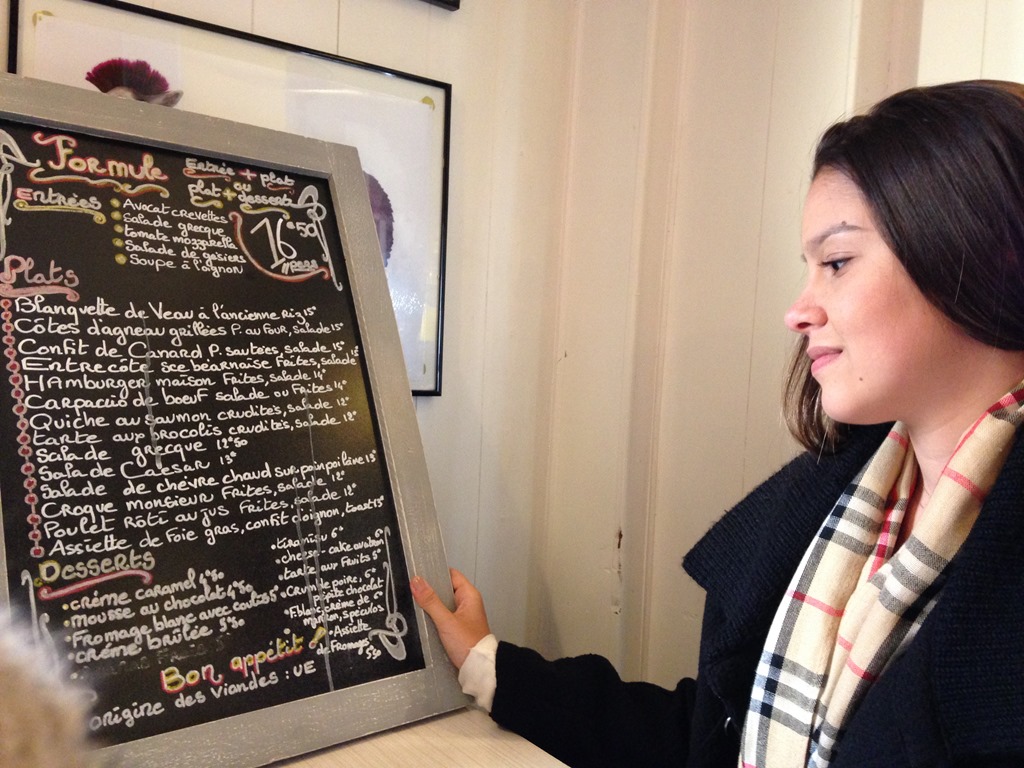 Formule
Entrée + plat
ou
plat + dessert
16€50
Entrées
Avocat crevettes
Salade grecque
tomate mozzarella
Salade de gésiers
Soupe à l'oignon
Plats
Blanquette de Veau à l'ancienne Riz 15€
Côtes d'agneau grillées P. au four, salade 15€
Confit de Canard P. sautées, salade 15€
Entrecôte sce béarnaise Frites, salade
Hamburger maison Frites, salade 14€
Carpaccio de boeuf salade ou Frites 14€
Quiche au saumon crudités, salade 12€
tarte aux brocolis crudités, salade 12€
Salade grecque 12€50
Salade Caesar 13€
Salade de chèvre chaud sur pain poilâne 13€
Croque monsieur Frites, salade 12€
Poulet Rôti au jus Frites, salade 12€
Assiette de Foie gras, confit d'oignon, toast 15€
Desserts
crème caramel 4€50
mousse au chocolat 4€50
Fromage blanc avec coulis 5€
crème brûlée 5€50
tiramisu 6€
cheese-cake
tarte aux Fruits 5€
Crumble poire, 6€
pépite chocolat
F.blanc, crème de 6€
marron, spéculos
Assiette
de Fromage
5€50
Bon appétit !
origine des Viandes : UE